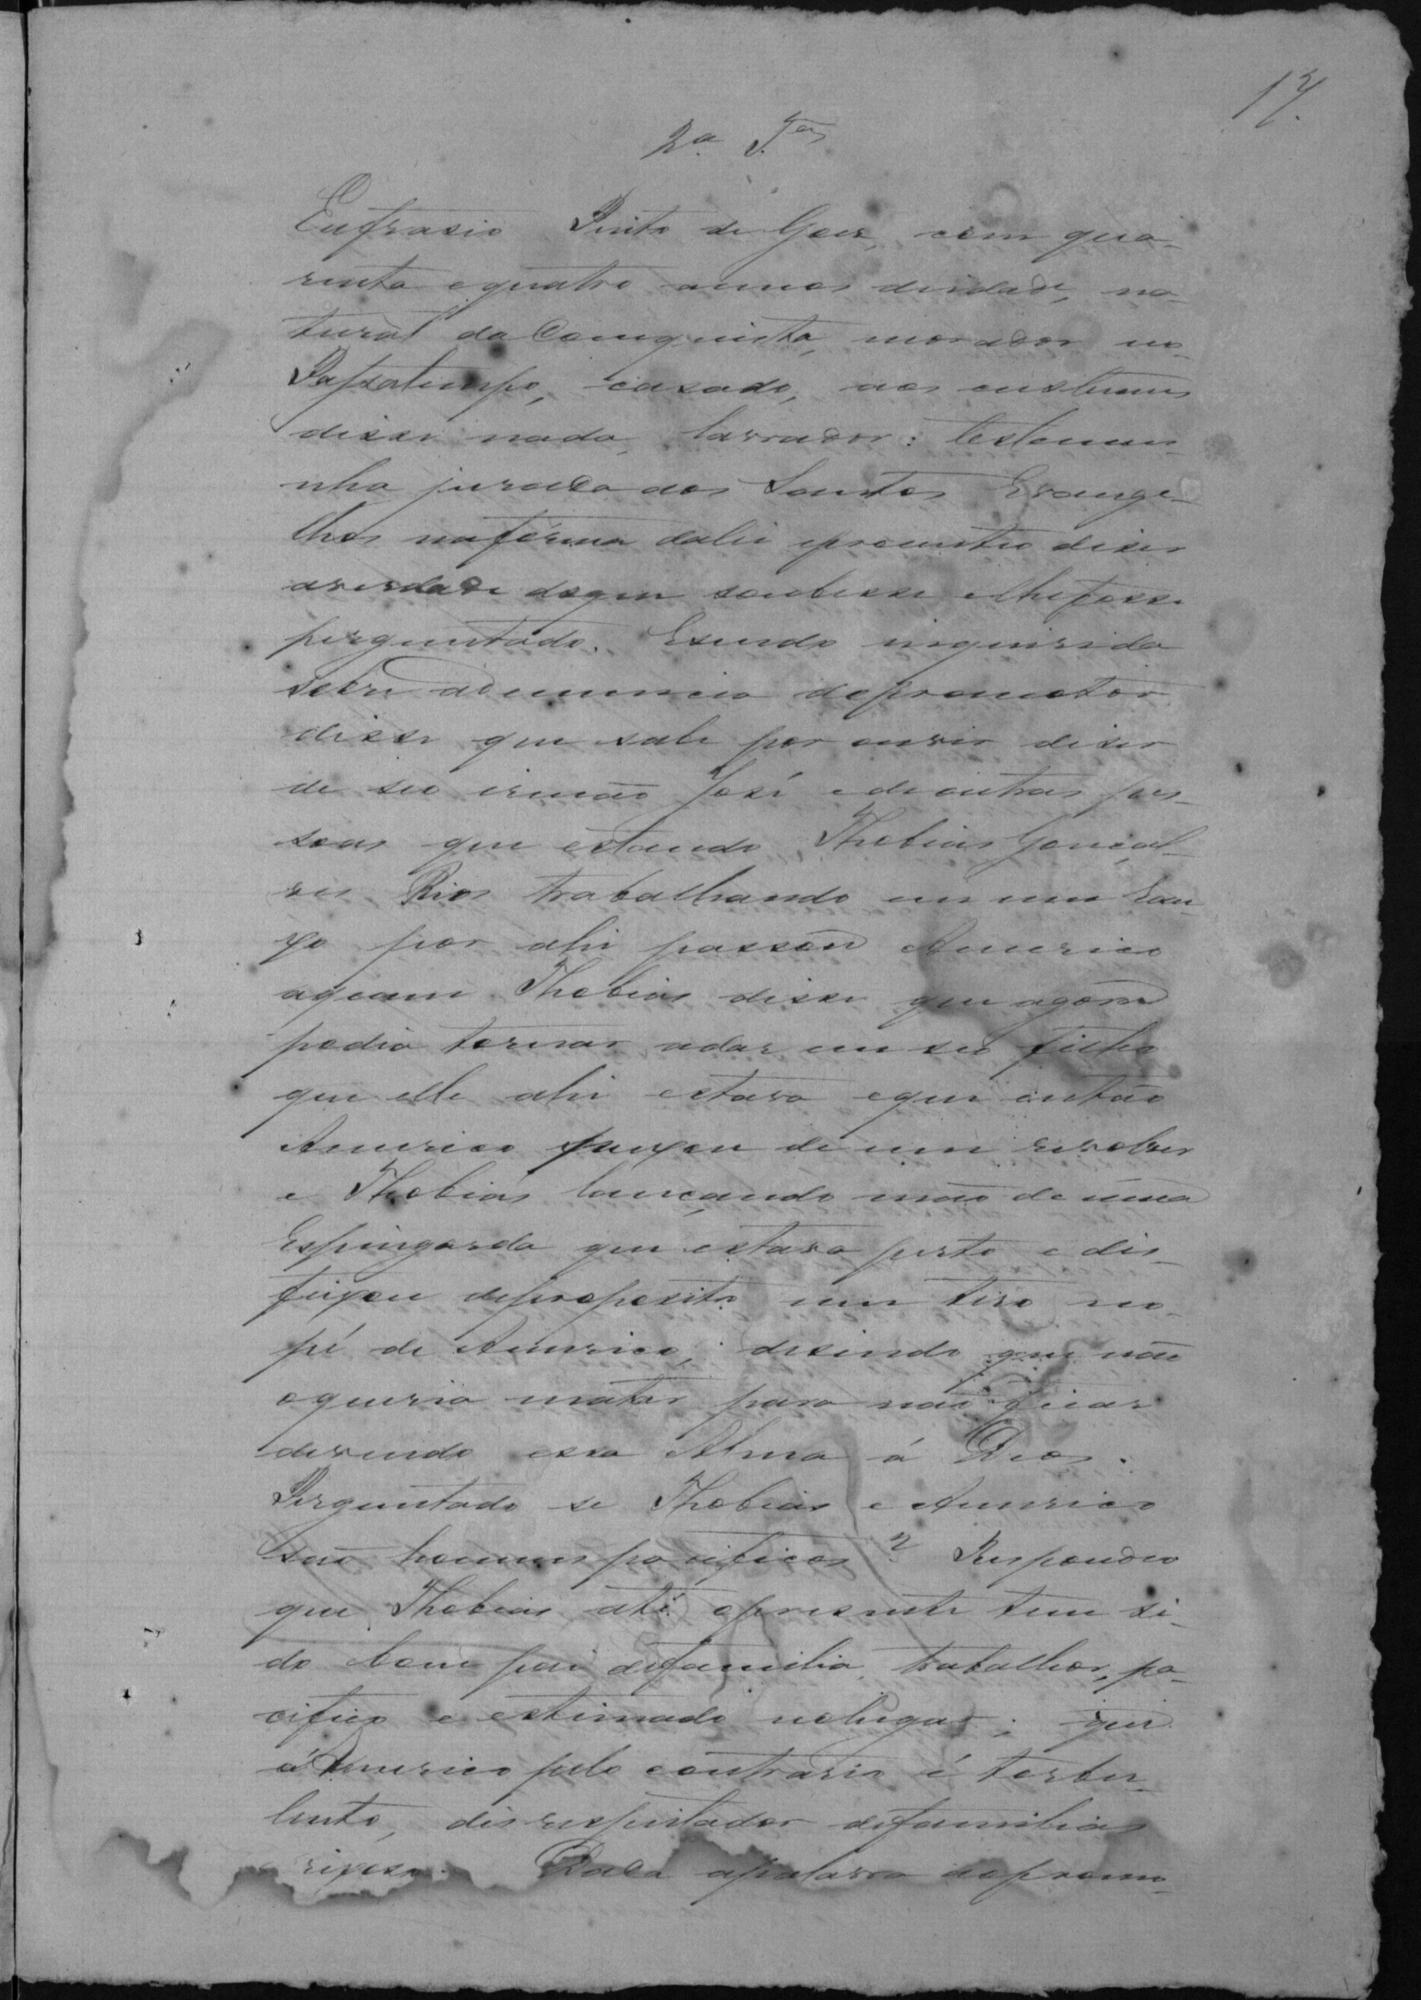 17.
2.a T.as
Eufrasio Pinto de Goes, com qua-
renta e quatro annos deidade, na-
tural da Conquista, morador no
Passatempo, casado, aos custumes
disse nada, lavrador: testemu-
nha jurada aos Santos Evange-
lhos naforma dalei eprometeu diser
averdade doque soubesse elhefosse
perguntado. Esendo inquirida
sobre adenuncia dopromotor
disse que sabe por ouvir diser
de seo irmão José e deoutras pes-
soas que estando Thobias Gonçal-
ves Rios trabalhando em um
por ahi passou Americo
aquem Thobias disse que agora
podia tornar adar em seo filho
que elle ahi estava eque então
Americo puxou de um revolver
e Thobias lançando mão de uma
Espingarda que estava perto e dis-
parou deproposito um tiro no
pé de Americo, disendo que não
oqueria matar para não ficar
devendo essa Alma á Deos.
Perguntado se Thobias e Americo
são homens pacificos? Respondeo
que Thobias até opresente tem si-
do bom pai defamilia, trabalhor, pa-
cifico e estimado nolugar; que
o Americo pelo contrario é torbu-
lento, disrespeitador defamilias
Dada apalavra aopromo-